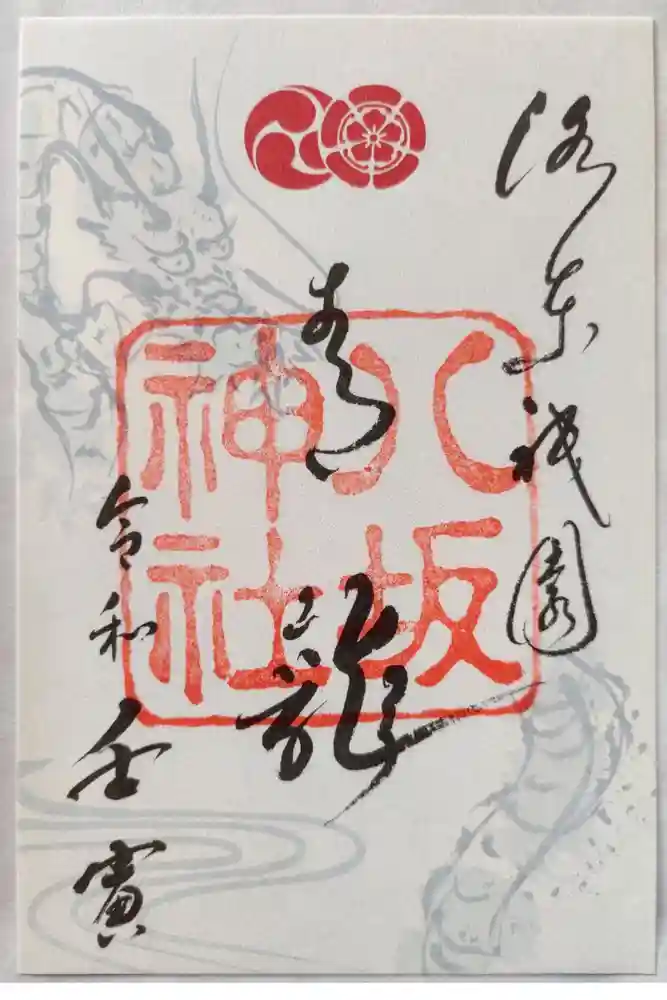 洛东祇園
青龍
令和壬寅
八坂
神社